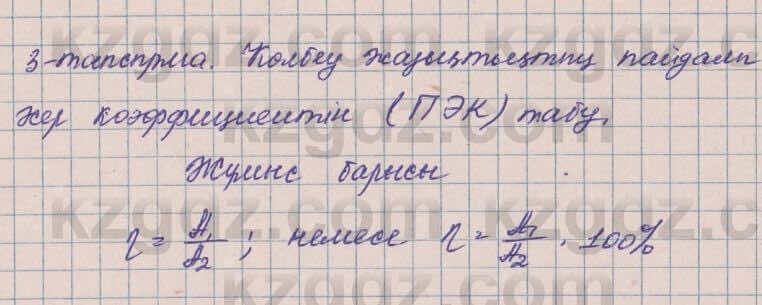 3-тапсырма. Көлбеу жазықтықтың пайдалы
әсер коэффициентін (ПӘК) табу.
Жұмыс барысы
η = A₁/A₂ ; немесе η = A₁/A₂ · 100%
kzgdz.com